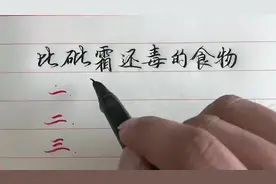 比砒霜还毒的食物
一
二
三